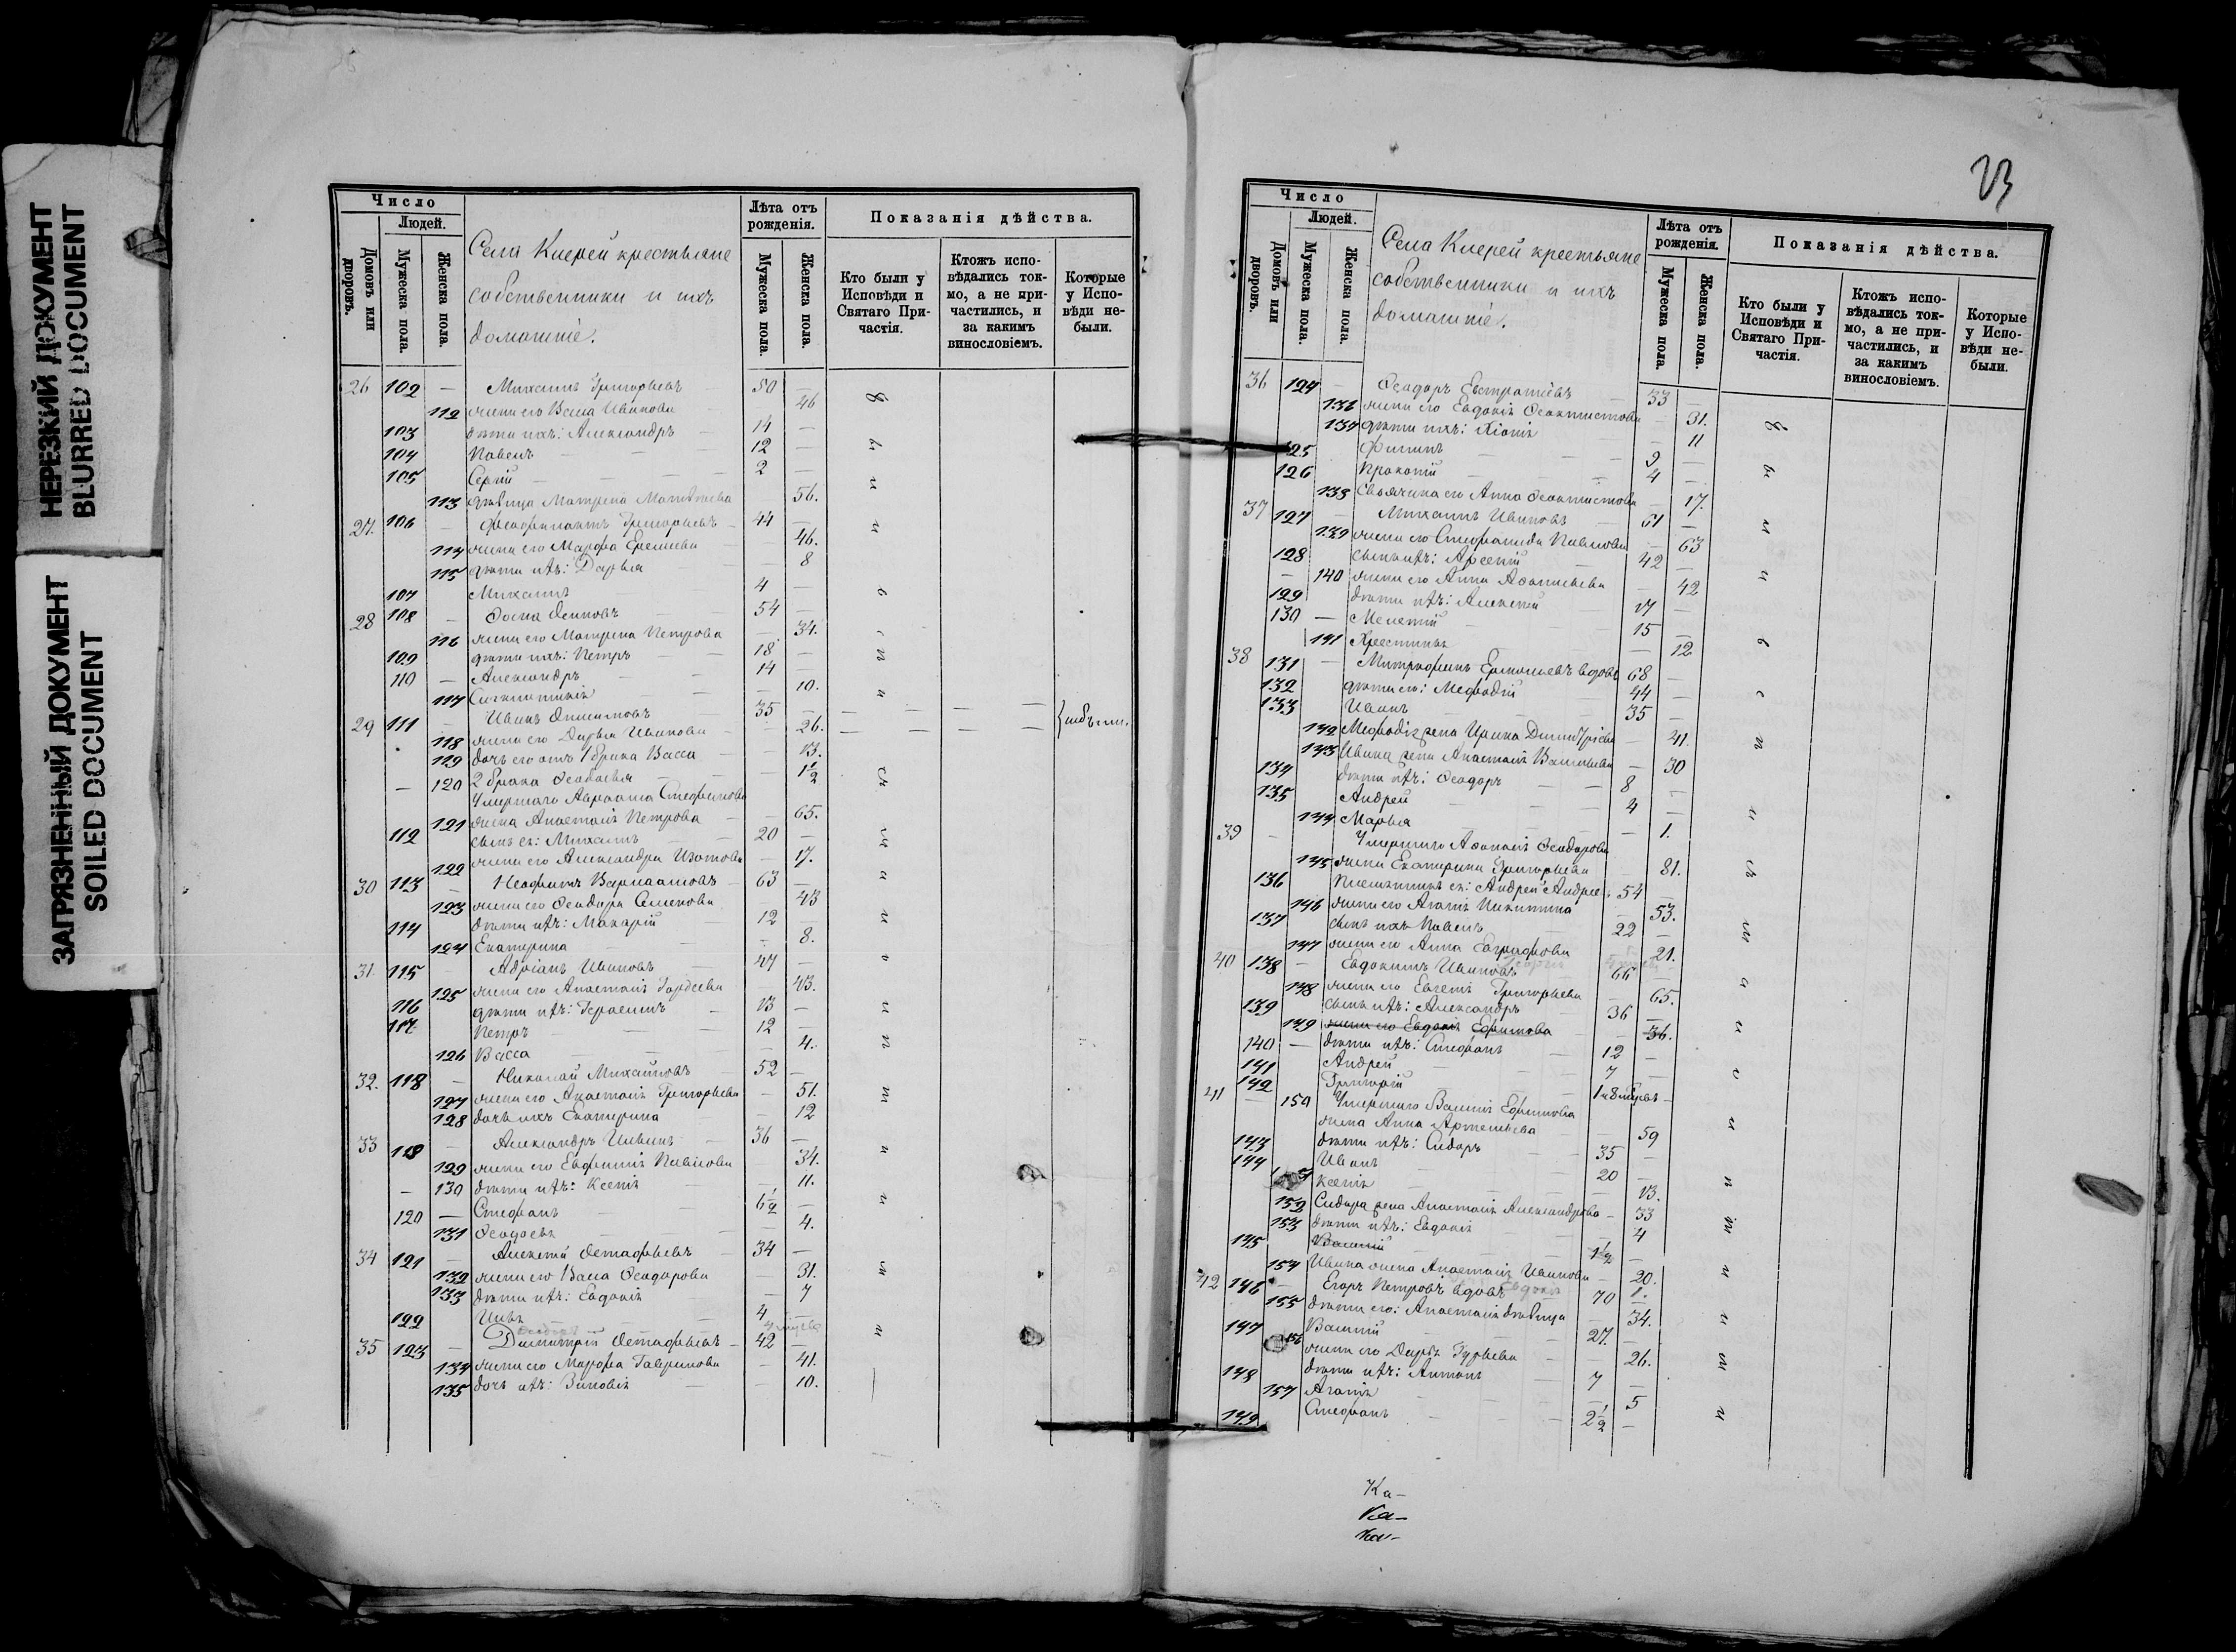 НЕРЕЗКИЙ ДОКУМЕНТ
BLURRED DOCUMENT
ЗАГРЯЗНЕННЫЙ ДОКУМЕНТ
SOILED DOCUMENT
Число
Людей.
Домовъ или дворовъ.
Мужеска пола.
Женска пола.
Села Киерей крестьяне
собственники и ихъ
домашніе.
Лѣта отъ рожденія.
Мужеска пола.
Женска пола.
Показанія дѣйства.
Кто были у Исповѣди и Святаго Причастія.
Ктожъ исповѣдались токмо, а не причастились, и за какимъ винословіемъ.
Которые у Исповѣди небыли.
26 102 — Михаилъ Григорьевъ 50 —
112 жена его Васса Иванова 46
103 дѣти ихъ: Александръ 14 —
104 Павелъ 12 —
105 Сергій 2 —
113 дѣвица Матрена Матвѣева 56.
27. 106 — Феофилактъ Григорьевъ 44 —
114 жена его Марфа — 46.
115 дѣти ихъ: Дарья — 8
107 Михаилъ 4 —
28 108 — Осиповъ 54 —
116 жена его Матрена Петрова — 34.
109 дѣти ихъ: Петръ 18 —
110 — Александръ 14 —
117 — 10.
29 111 — Иванъ 35 —
118 жена его Дарья Иванова — 26.
119 дочь его отъ 1 брака Васса — 13.
— 120 2 брака Феодосья — 1 1/2
Умершаго Стефанова
121 жена Анастасія Петрова — 65.
112 сынъ ея: Михаилъ 20 —
122 жена его Александра Изотова — 17.
30 113 — Неофитъ Варлаамовъ 63 —
123 жена его Феодора Семенова — 43
114 дѣти ихъ: Макарій 12 —
124 Екатерина — 8.
31. 115 — Адріанъ Ивановъ 47 —
125 жена его Анастасія Гордеева — 43.
116 дѣти ихъ: Герасимъ 13 —
117 Петръ 12 —
126 Васса — 4.
32. 118 — Николай Михайловъ 52 —
127 жена его Анастасія Григорьева — 51.
128 дочь ихъ Екатерина — 12
33 118 — Александръ 36 —
129 жена его Евфимія Павлова — 34.
— 130 дѣти ихъ: Ксенія — 11.
120 — Стефанъ 6 1/2 —
131 Феодосья — 4.
34 121 Алексѣй Остафьевъ 34 —
132 жена его Васса Феодорова — 31.
133 дѣти ихъ: Евдокія — 7
122 4 —
35 123 — Димитрій Остафьевъ 42 —
134 жена его Марфа Гаврилова — 41.
135 дочь ихъ: Зиновія — 10.
23
Число
Людей.
Домовъ или дворовъ.
Мужеска пола.
Женска пола.
Села Киерей крестьяне
собственники и ихъ
домашніе.
Лѣта отъ рожденія.
Мужеска пола.
Женска пола.
Показанія дѣйства.
Кто были у Исповѣди и Святаго Причастія.
Ктожъ исповѣдались токмо, а не причастились, и за какимъ винословіемъ.
Которые у Исповѣди небыли.
36 124 — Феодоръ Евстратіевъ 33 —
136 жена его Евдокія Феоктистова — 31.
137 дѣти ихъ: — 11
125 Филипъ 9 —
126 Прокопій 4 —
138 его Анна Феоктистова — 17.
37 127 — Михаилъ Ивановъ 61 —
139 жена его Стефанида Павлова — 63
128 сынъ ихъ: Арсеній 42 —
— 140 жена его Анна Афанасьева — 42
129 дѣти ихъ: Алексѣй 17 —
130 — Мелетій 15 —
141 Христина — 12
38 131 — Митрофанъ вдовъ 68 —
132 дѣти его: Мефодій 44 —
133 Иванъ 35 —
142 Мефодія жена Ирина Димитріева — 41.
143 Ивана жена Анастасія Васильева — 30
134 дѣти ихъ: Феодоръ 8 —
135 Андрей 4 —
144 Марья — 1.
39 — Умершаго Афанасія Феодорова
145 жена Екатерина Григорьева — 81.
136 Племянникъ ея: Андрей 54 —
146 жена его Агафія Никитина — 53.
137 сынъ ихъ Павелъ 22 —
147 жена его Анна Евграфова — 21.
40 138 — Евдокимъ Ивановъ 66 —
148 жена его Григорьева — 65.
139 сынъ ихъ: Александръ 36 —
149 жена его Евдокія Ефимова — 36.
140 — дѣти ихъ: Стефанъ 12 —
141 Андрей 7 —
142 Григорій
41 — 150 Умершаго Василія Ефимова
жена Анна Артемьева — 59
143 дѣти ихъ: Сидоръ 35 —
144 Иванъ 20 —
Ксенія — 13.
152 Сидора жена Анастасія Александрова — 33
153 дѣти ихъ: Евдокія — 4
145 Василій 1 1/2 —
154 Ивана жена Анастасія Иванова — 20.
42 146 — Егоръ Петровъ вдовъ 70 —
155 дѣти его: Анастасія дѣвица — 34.
147 Василій 27. —
жена его Дарья Гурьева — 26.
148 дѣти ихъ: Антонъ 7 —
157 Агафія — 5
149 Стефанъ 2 1/2 —
Ка-
Ка-
Ка-